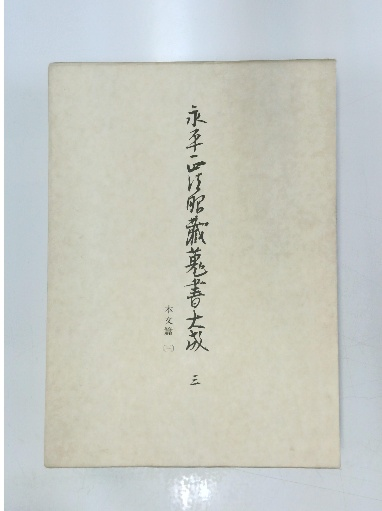 永平正法眼蔵蒐書大成 三
本文篇(三)